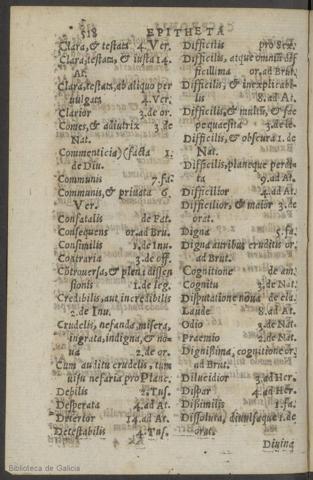 518 EPITHETA
Clara, & testata 4. Ver.
Clara, testata, & iusta 14.
At.
Clara, testata, ab aliquo per
uulgata 4. Ver.
Clarior 3. de or.
Comes, & adiutrix 3. de
Nat.
Commenticia) facta 1.
de Diu.
Communis 7. fa.
Communis, & priuata 6.
Ver.
Confatalis de Fat.
Consequens or. ad Bru.
Consimilis 1. de Inu.
Contraria 3. de off.
Cōtrouersa, & plena dissen
sionis 1. de leg.
Credibilis, aut incredibilis
2. de Inu.
Crudelis, nefanda, misera,
ingrata, indigna, & no-
ua 2. de or.
Cum auditu crudelis, tum
uisu nefaria pro Planc.
Debilis 2. Tus.
Desperata 4. ad At.
Deterior 14. ad At.
Detestabilis 4. Tus.
Difficilis pro Sex.
Difficilis, atque omnium dif
ficillima or. ad Brut.
Difficilis, & inexplicabi-
lis 8. ad At.
Difficilis, & multū, & sæ
pe quæsita 3. de le.
Difficilis, & obscura 1. de
Nat.
Difficilis, planeque perdi-
ta 9. ad At.
Difficilior 4. ad At.
Difficilior, & maior 3. de
orat.
Digna 5. fa.
Digna auribus eruditis or.
ad Brut.
Cognitione de am.
Cognitu 3. de Nat.
Disputatione noua de cla.
Laude 8. ad At.
Odio 3. de Nat.
Præmio 2. de Nat.
Dignißima, cognitione or.
ad Brut.
Dilucidior 3. ad Her.
Dispar 4. ad Her.
Dissimilis 1. fa.
Dissoluta, diuulsaque 1. de
orat.
Diuina
Biblioteca de Galicia